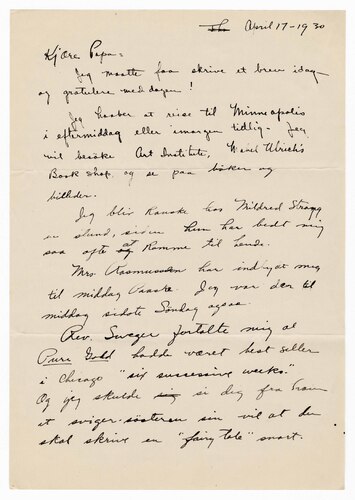 April 17-1930
Kjære Papa-
Jeg maatte faa skrive et brev idag
og gratulere med dagen!
Jeg haaber at reise til Minneapolis
i eftermiddag eller imorgen tidlig - Jeg
vil besøke Art Institute, Ulrich's
Book Shop, og se paa bøker og
billeder.
Jeg blir kanske hos Mildred
en stund, siden hun har bedt mig
saa ofte at komme til hende.
Mrs. Rasmussen har indbydt mig
til middag Paaske. Jeg var der til
middag sidste Søndag ogsaa.
Rev. Sweger fortalte mig at
Pure Gold hadde været best seller
i Chicago "six successive weeks."
Og jeg skulde si dig fra ham
at sviger-søsteren sin vil at du
skal skrive en "fairy tale" snart.